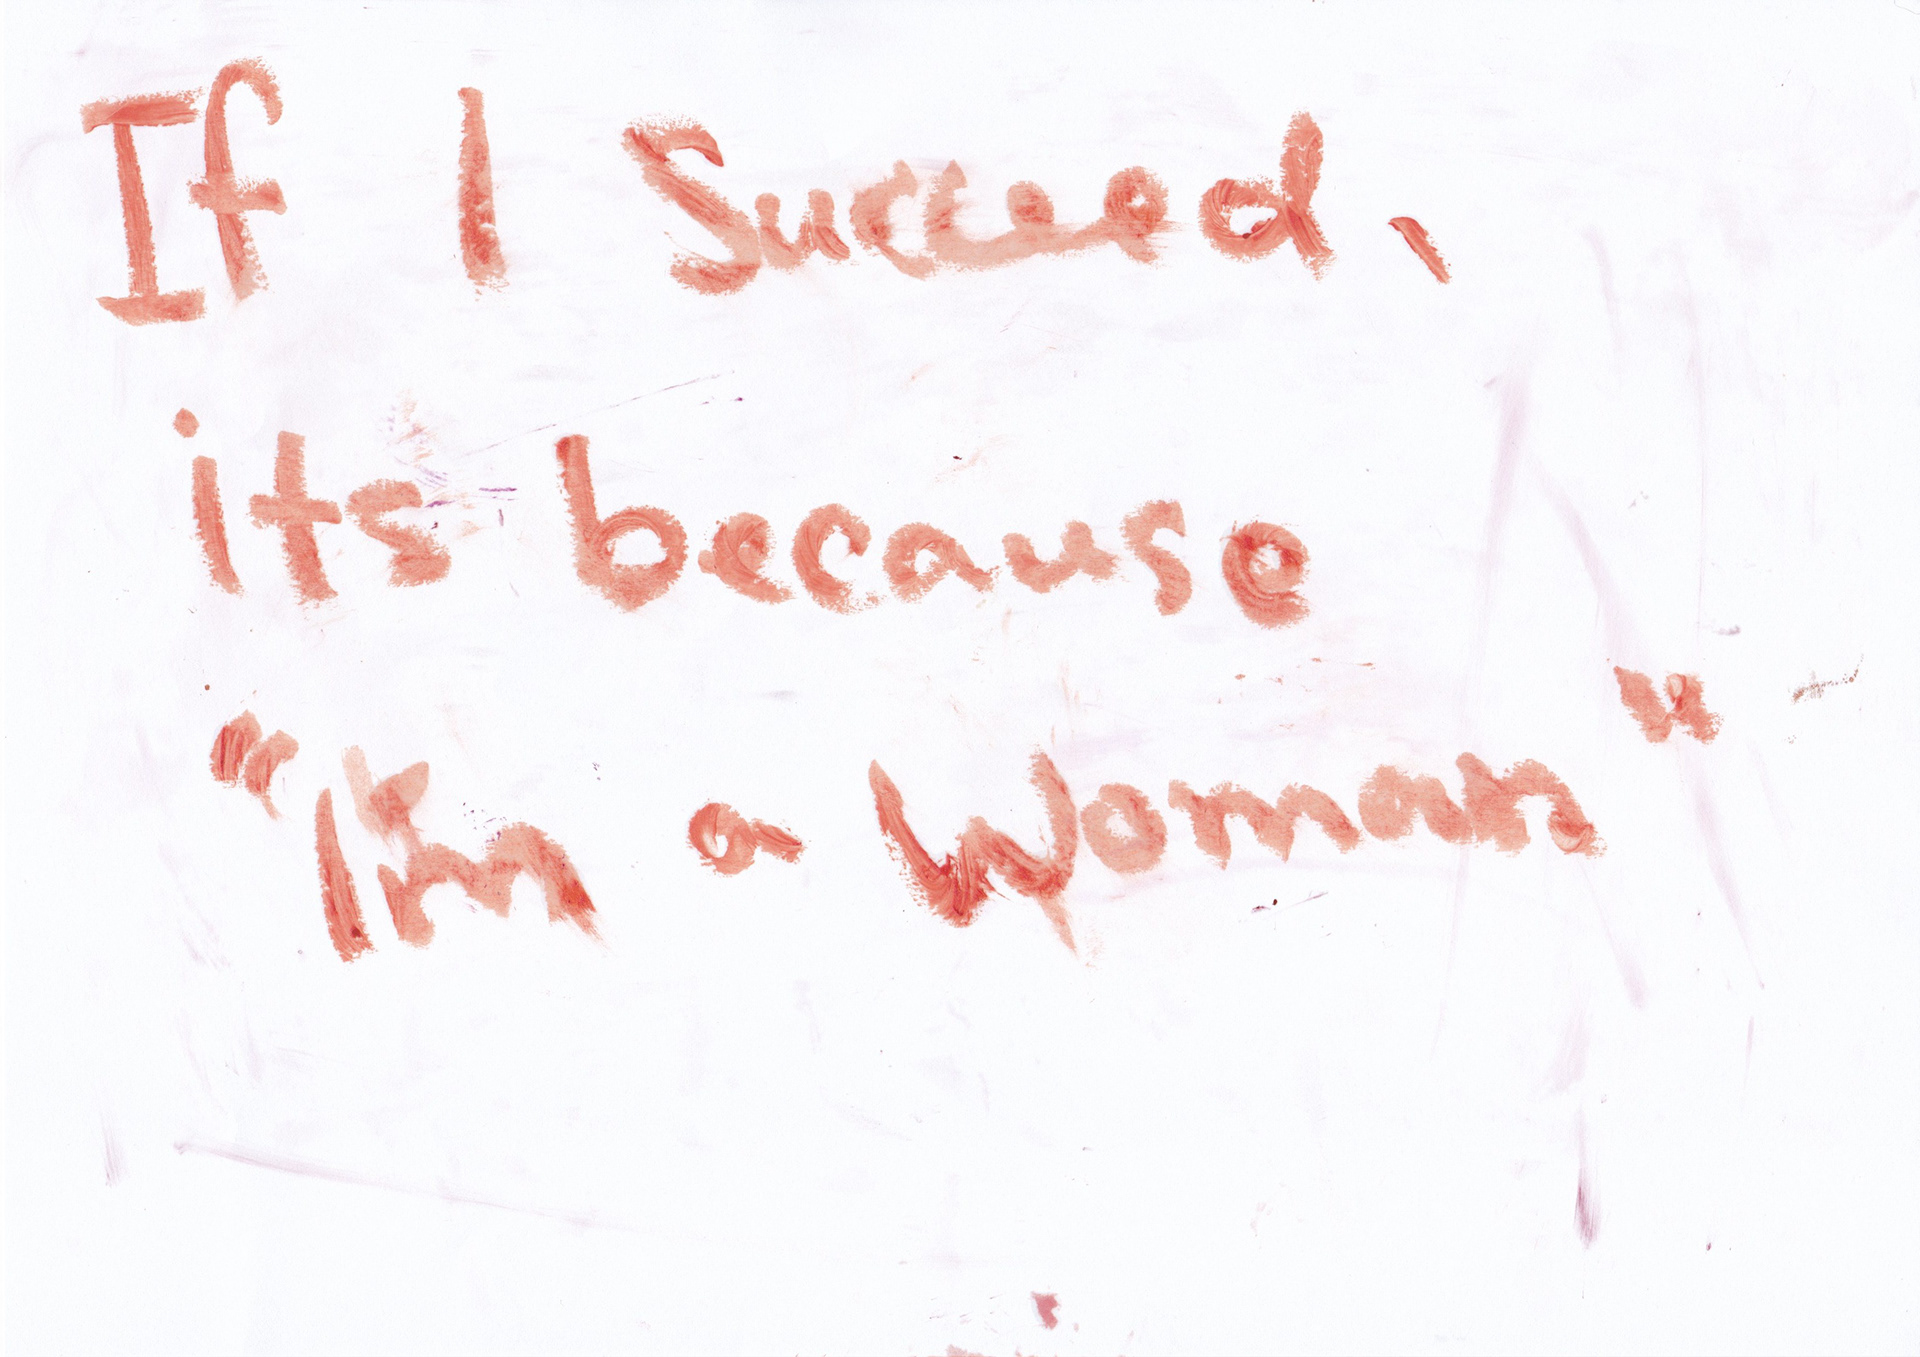 If I Succeed,
its because
"I'm a Woman"